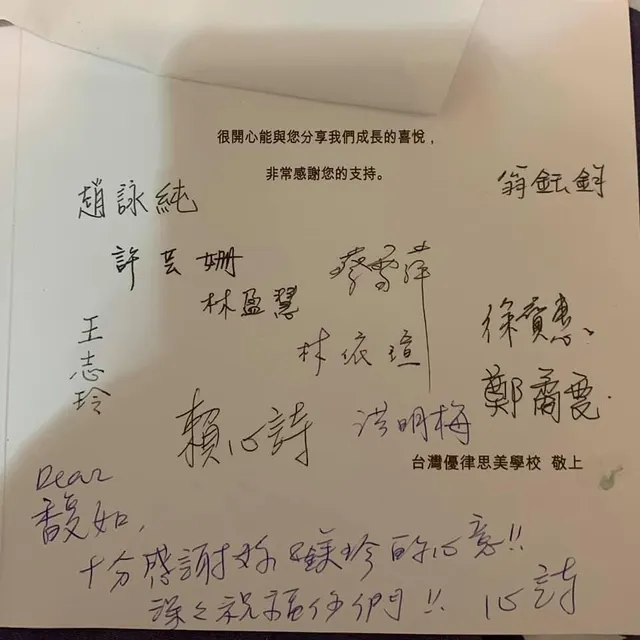 很開心能與您分享我們成長的喜悅，
非常感謝您的支持。
趙詠純
翁鈺鈄
許芸姍
林盈慧
蔡雪萍
王志玲
林依瑄
徐寶惠
鄭喬雯
賴心詩
洪明梅
台灣優律思美學校 敬上
Dear
馥如，
十分感謝妳&鎂玲的心意!!
深深祝福你們!!
心詩